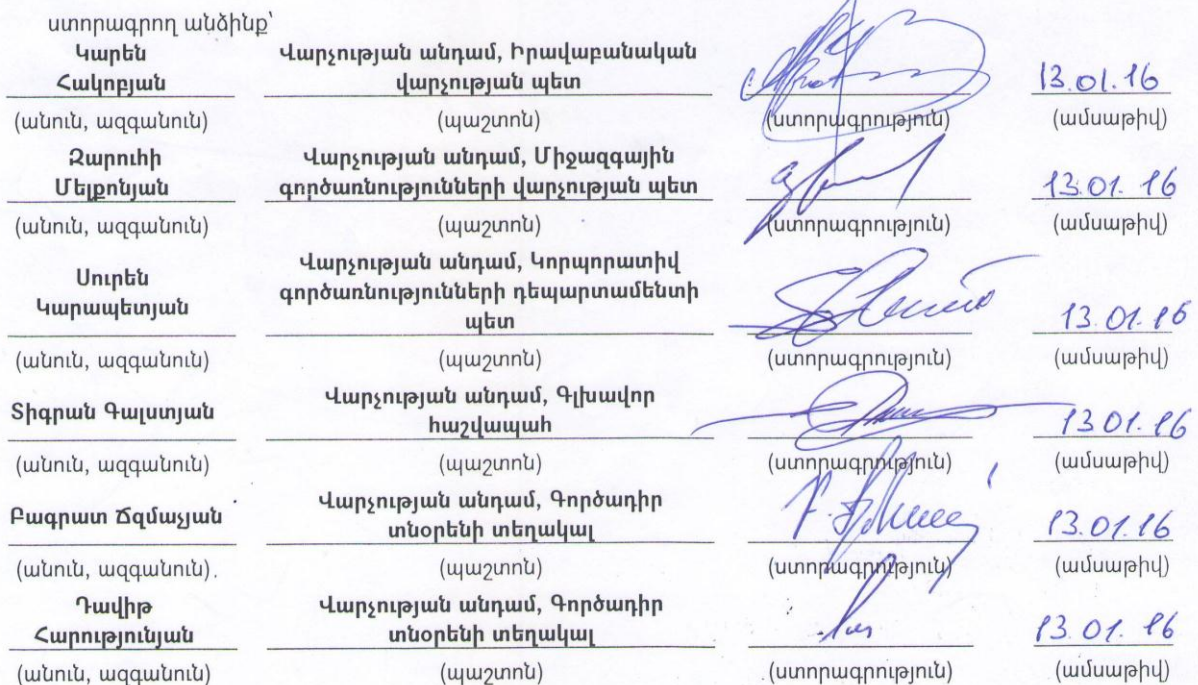 ստորագրող անձինք՝
Կարեն Վարչության անդամ, Իրավաբանական
Հակոբյան վարչության պետ 13.01.16
(անուն, ազգանուն) (պաշտոն) (ստորագրություն) (ամսաթիվ)
Զարուհի Վարչության անդամ, Միջազգային
Մելքոնյան գործառնությունների վարչության պետ 13.01.16
(անուն, ազգանուն) (պաշտոն) (ստորագրություն) (ամսաթիվ)
Սուրեն Վարչության անդամ, Կորպորատիվ
Կարապետյան գործառնությունների դեպարտամենտի
պետ 13.01.16
(անուն, ազգանուն) (պաշտոն) (ստորագրություն) (ամսաթիվ)
Տիգրան Գալստյան Վարչության անդամ, Գլխավոր
հաշվապահ 13.01.16
(անուն, ազգանուն) (պաշտոն) (ստորագրություն) (ամսաթիվ)
Բագրատ Ճզմաչյան Վարչության անդամ, Գործադիր
տնօրենի տեղակալ 13.01.16
(անուն, ազգանուն) (պաշտոն) (ստորագրություն) (ամսաթիվ)
Դավիթ Վարչության անդամ, Գործադիր
Հարությունյան տնօրենի տեղակալ 13.01.16
(անուն, ազգանուն) (պաշտոն) (ստորագրություն) (ամսաթիվ)